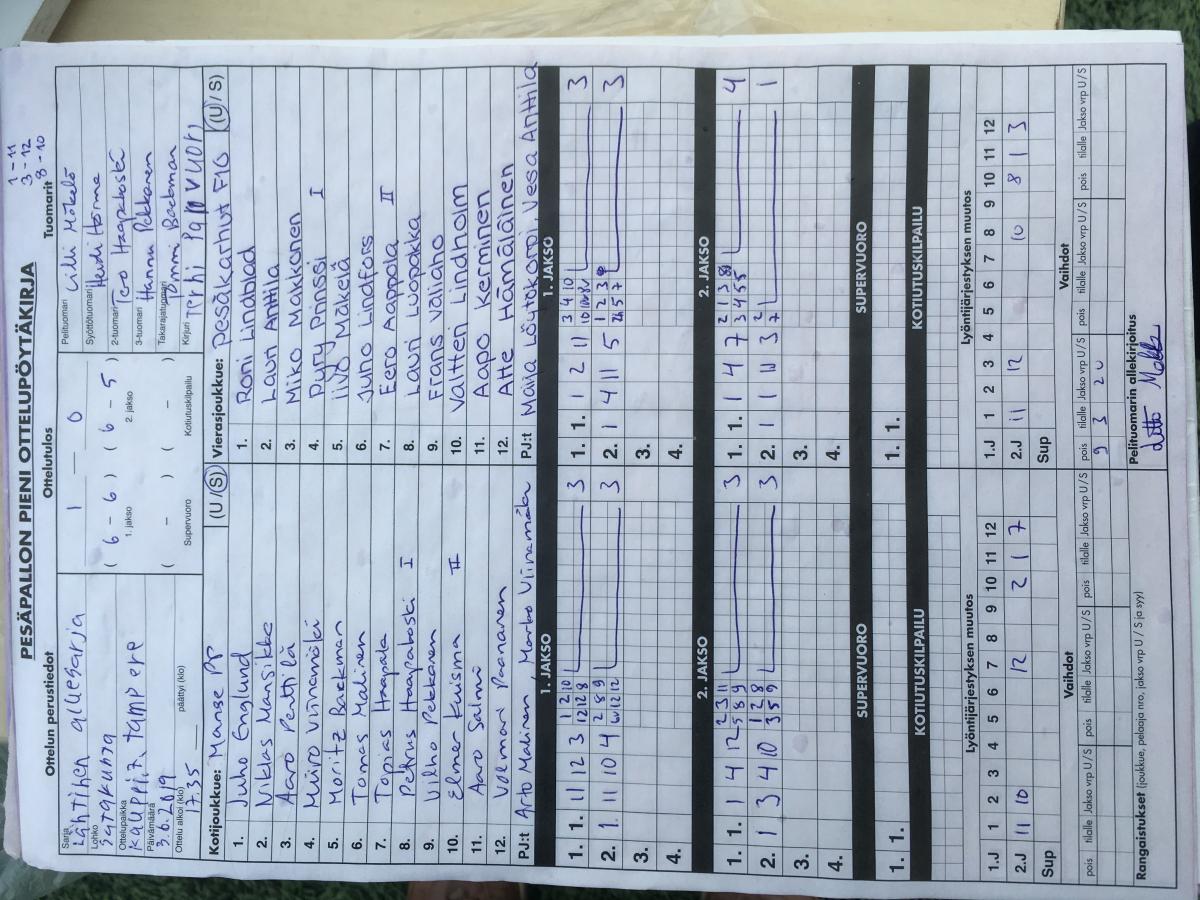 PESÄPALLON PIENI OTTELUPÖYTÄKIRJA
1-11
3-12
8-10
Ottelun perustiedot
Sarja
Lohko
Satakunta
Ottelupaikka
Kauppi, Tampere
Päivämäärä
3.6.2019
Ottelu alkoi (klo)
17.35
päättyi (klo)
Ottelutulos
1 — 0
( 6 - 6 ) ( 6 - 5 )
1. jakso 2. jakso
( - ) ( - )
Supervuoro Kotiutuskilpailu
Tuomarit
Pelituomari
Syöttötuomari Heidi Hörmä
2-tuomari Tero Haapakoski
3-tuomari Hannu Pekkanen
Takarajatuomari Tommi Backman
Kirjuri Terhi Parivuori
Kotijoukkue: Manse PP (U / S)
1. Juho Englund
2. Niklas Mansikka
3. Aaro Penttilä
4. Miiro Viinamäki
5. Moritz Backman
6. Tomas Malinen
7. Topias Haapala
8. Petrus Haapakoski I
9. Vilho Pekkanen
10. Elmer Kuisma II
11. Aaro Salmi
12. Voitto Paananen
PJ:t Arto Malinen Marko Viinamäki
Vierasjoukkue: Pesäkarhut F10 (U / S)
1. Roni Lindblad
2. Lauri Anttila
3. Miko Makkonen
4. Pury Prinssi I
5. Iivo Mäkelä
6. Juno Lindfors
7. Eero Aappola II
8. Lauri Luopakka
9. Frans Väliaho
10. Valtteri Lindholm
11. Aapo Kerminen
12. Atte Hämäläinen
PJ:t Maija Löytökorpi, Vesa Anttila
1. JAKSO
1. 1. 11 12 3 1 2 10 12 12 8 3
2. 1 11 10 4 2 8 9 3
3.
4.
1. JAKSO
1. 1. 1 2 11 3 4 10 3
2. 1 4 11 5 1 2 3 3
3.
4.
2. JAKSO
1. 1. 1 4 12 2 3 11 5 8 9 3
2. 1 3 4 10 1 2 8 3 5 9 3
3.
4.
2. JAKSO
1. 1. 1 4 7 2 1 3 3 4 5 5 4
2. 1 1 11 3 2 7 1
3.
4.
SUPERVUORO
1. 1.
SUPERVUORO
1. 1.
KOTIUTUSKILPAILU
KOTIUTUSKILPAILU
Lyöntijärjestyksen muutos
1.J 1 2 3 4 5 6 7 8 9 10 11 12
2.J 11 10 12 2 1 7
Sup
Lyöntijärjestyksen muutos
1.J 1 2 3 4 5 6 7 8 9 10 11 12
2.J 11 12 10 8 1 3
Sup
Vaihdot
pois tilalle Jakso vrp U / S pois tilalle Jakso vrp U / S pois tilalle Jakso vrp U / S
Vaihdot
pois tilalle Jakso vrp U / S pois tilalle Jakso vrp U / S pois tilalle Jakso vrp U / S
9 3 2U
Rangaistukset (joukkue, pelaaja nro, jakso vrp U / S ja syy)
Pelituomarin allekirjoitus